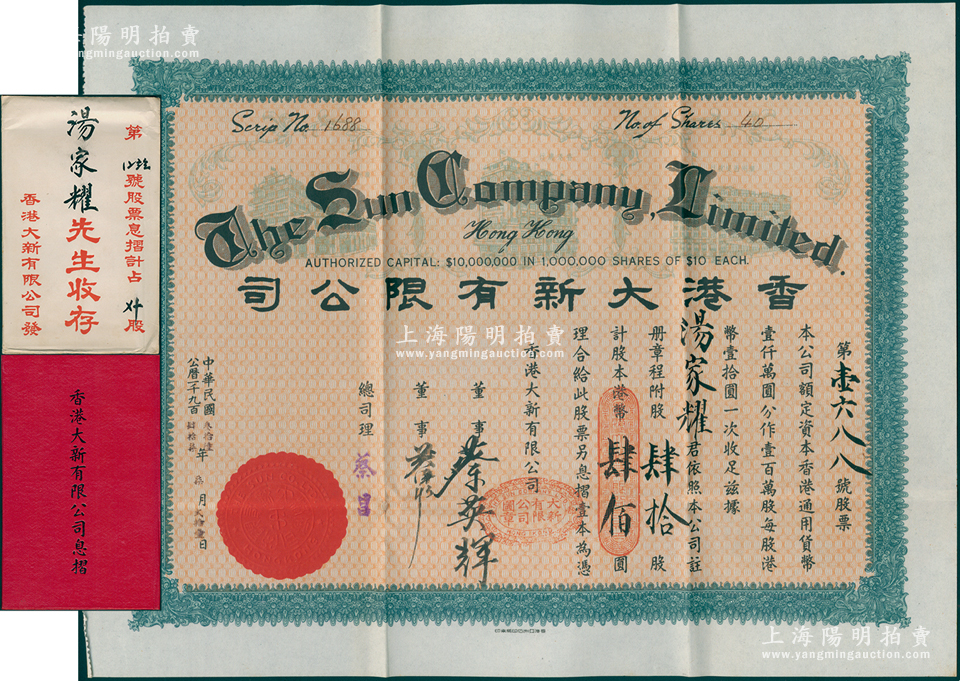 上海陽明拍賣
www.yangmingauction.com
第 號股票息摺計占 股
湯家耀先生收存
香港大新有限公司發
香港大新有限公司息摺
Scrip No. 1688
No. of Shares 40
The Sun Company, Limited.
Hong Kong
AUTHORIZED CAPITAL: $10,000,000 IN 1,000,000 SHARES OF $10 EACH.
司公限有新大港香
第壹六八八號股票
本公司額定資本香港通用貨幣
壹仟萬圓分作壹百萬股每股港
幣壹拾圓一次收足茲據
湯家耀君依照本公司註
册章程附股肆拾股
計股本港幣肆佰圓
理合給此股票另息摺壹本為憑
香港大新有限公司
董事 蔡英輝
董事
總司理 蔡昌
中華民國 年 月 日
公曆一千九百
上海陽明拍賣
www.yangmingauction.com
上海陽明拍賣
www.yangmingauction.com